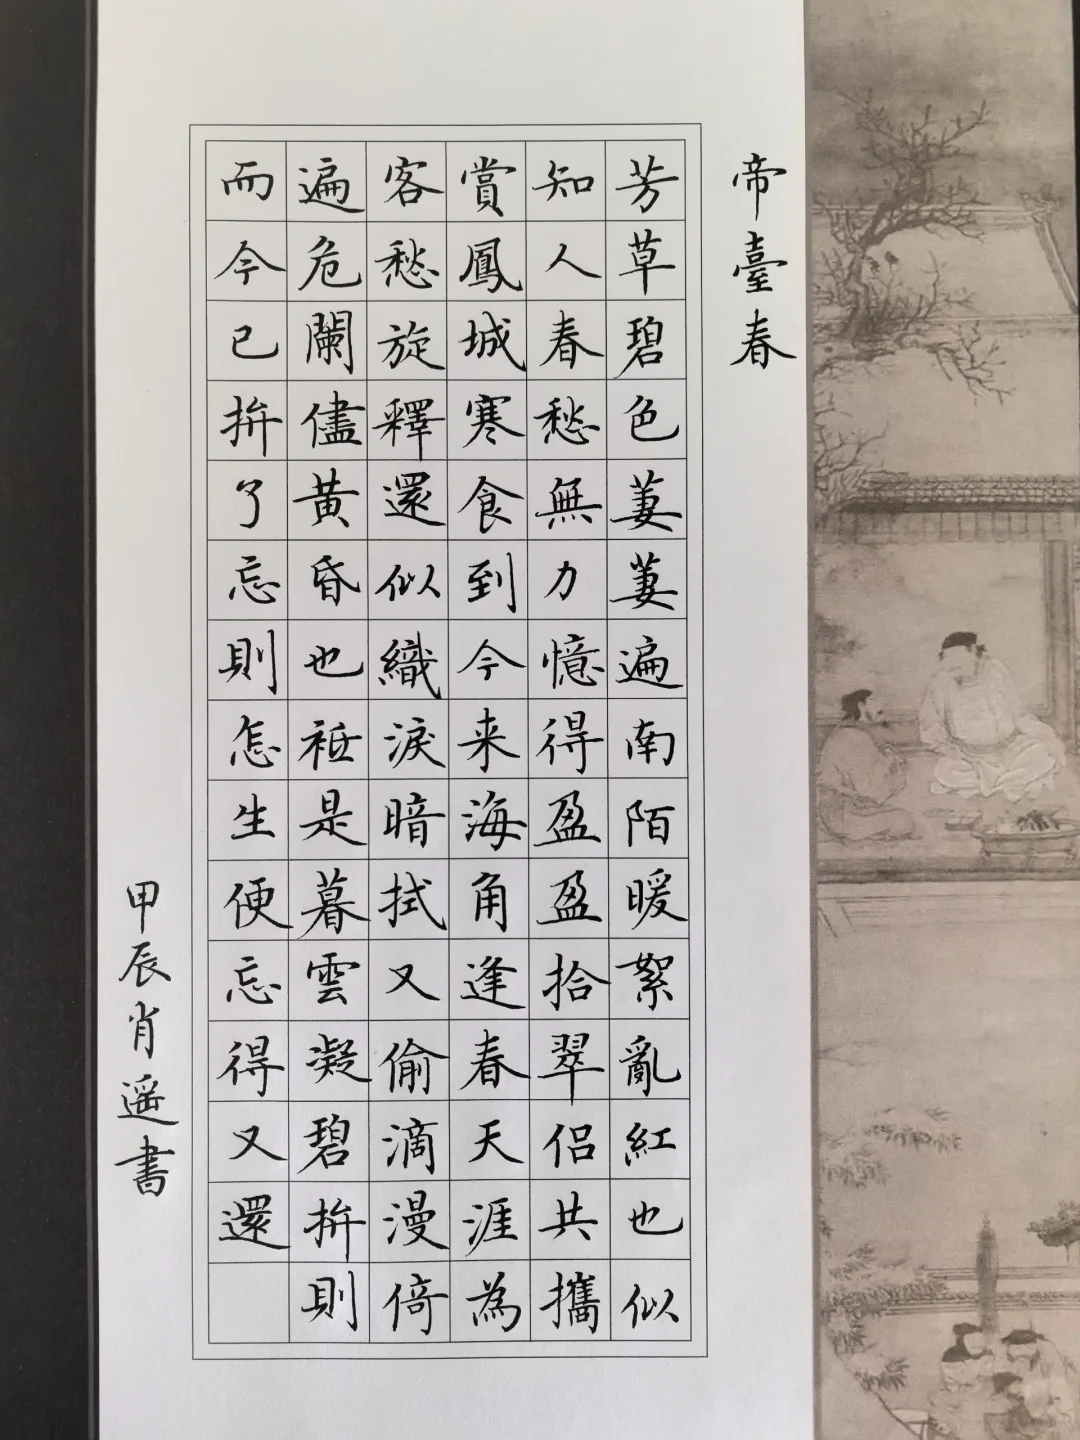 帝臺春
芳草碧色萋萋遍南陌暖絮亂紅也似
知人春愁無力憶得盈盈拾翠侶共攜
賞鳳城寒食到今来海角逢春天涯為
客愁旋釋還似織淚暗拭又偷滴漫倚
遍危闌儘黃昏也袛是暮雲凝碧拚則
而今已拚了忘則怎生便忘得又還
甲辰肖遥書